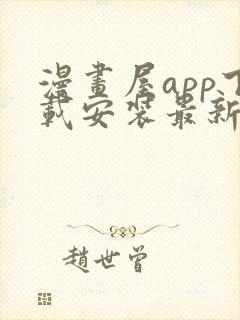 漫畫屋app下
載安装最新
趙世曾